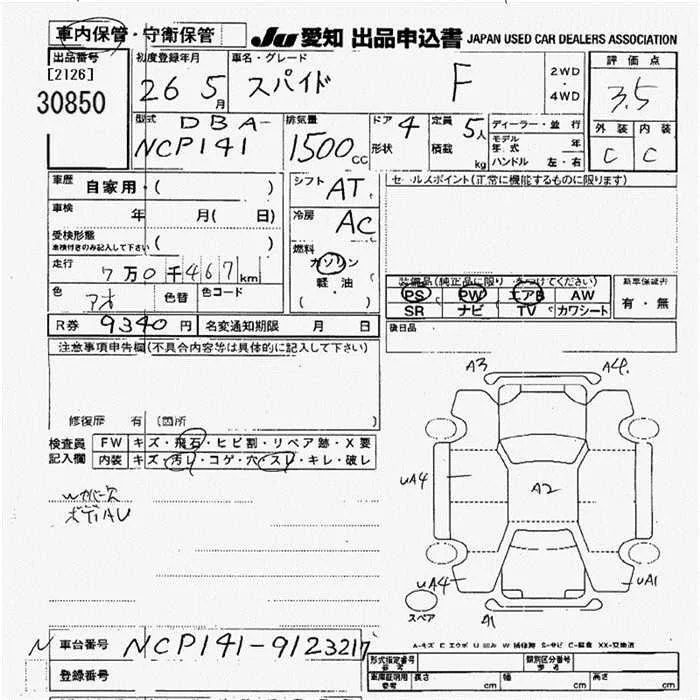 車内保管・守衛保管
JU 愛知 出品申込書 JAPAN USED CAR DEALERS ASSOCIATION
出品番号
[2126]
30850
初度登録年月
26 5月
車名・グレード
スパイド F
2WD
4WD
評価点
3.5
外装 内装
C C
型式
DBA-
NCP141
排気量
1500cc
ドア 4
形状
定員 5人
積載 kg
ディーラー・並行
モデル年式 年
ハンドル 左・右
車歴 自家用・( )
車検 年 月( 日)
受検形態
車検付きのみ記入して下さい ( )
走行 7万0千467km
色 アオ 色替 色コード
シフト AT
冷房 AC
燃料
ガソリン
軽油
( )
セールスポイント(正常に機能するものに限ります)
装備品(純正品に限り をつけてください)
PS PW エアB AW
SR ナビ TV カワシート
新車保証書
有・無
後日品
R券 9340円 名変通知期限 月 日
注意事項申告欄(不具合内容等は具体的に記入して下さい)
修復歴 有 (箇所 )
検査員記入欄
FW キズ・飛石・ヒビ割・リペア跡・X要
内装 キズ・汚レ・コゲ・穴・スレ・キレ・破レ
ボディAU
A3 A4
UA4 A2
UA4 UA1
A1
スペア
N 車台番号 NCP141-9123217
登録番号
型式指定番号
類別区分番号
車庫証明用参考 長さ cm 幅 cm 高さ cm